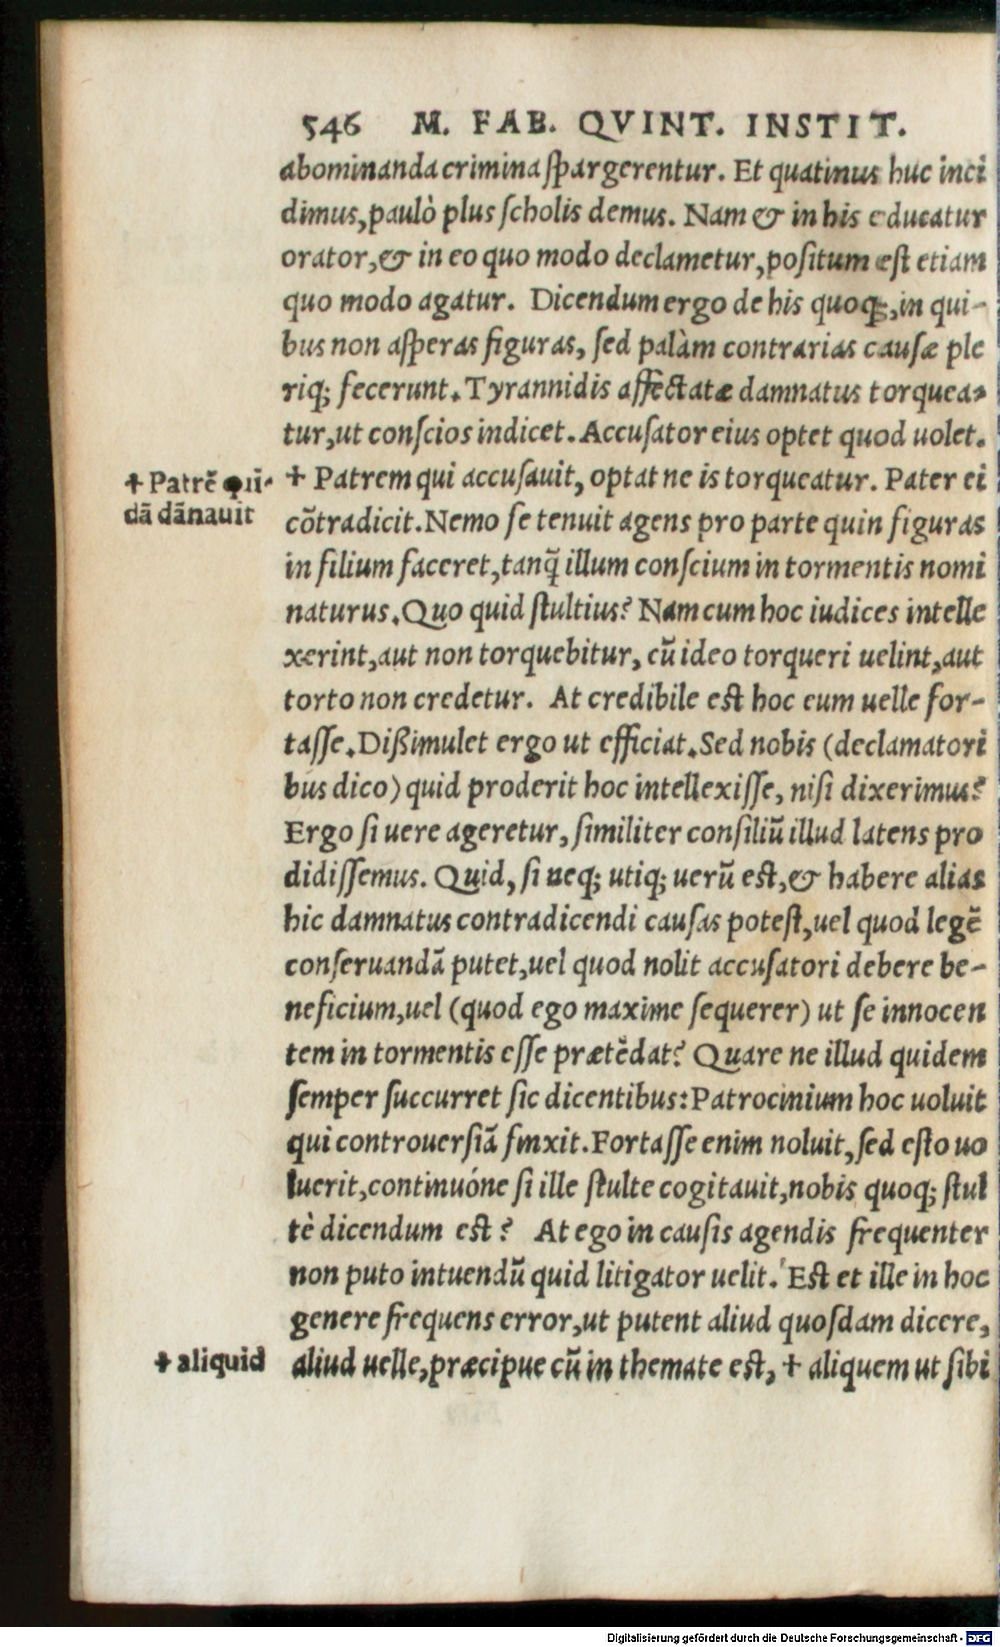 546 M. FAB. QVINT. INSTIT.
abominanda crimina ſpargerentur. Et quatinus huc inci
dimus, paulò plus ſcholis demus. Nam & in his educatur
orator, & in eo quo modo declametur, poſitum eſt etiam
quo modo agatur. Dicendum ergo de his quoq;, in qui-
bus non aſperas figuras, ſed palàm contrarias cauſæ ple
riq; fecerunt. Tyrannidis affectatæ damnatus torquea-
tur, ut conſcios indicet. Accuſator eius optet quod uolet.
✝ Patrē qui-
dā dānauit
✝ Patrem qui accuſauit, optat ne is torqueatur. Pater ei
cōtradicit. Nemo ſe tenuit agens pro parte quin figuras
in filium faceret, tanq̃ illum conſcium in tormentis nomi
naturus. Quo quid ſtultius? Nam cum hoc iudices intelle
xerint, aut non torquebitur, cū ideo torqueri uelint, aut
torto non credetur. At credibile eſt hoc eum uelle for-
taſſe. Dißimulet ergo ut efficiat. Sed nobis (declamatori
bus dico) quid proderit hoc intellexiſſe, niſi dixerimus?
Ergo ſi uere ageretur, ſimiliter conſiliū illud latens pro
didiſſemus. Quid, ſi neq; utiq; uerū eſt, & habere alias
hic damnatus contradicendi cauſas poteſt, uel quod legē
conſeruandā putet, uel quod nolit accuſatori debere be-
neficium, uel (quod ego maxime ſequerer) ut ſe innocen
tem in tormentis eſſe prætēdat? Quare ne illud quidem
ſemper ſuccurret ſic dicentibus: Patrocinium hoc uoluit
qui controuerſiā finxit. Fortaſſe enim noluit, ſed eſto uo
luerit, continuóne ſi ille ſtulte cogitauit, nobis quoq; ſtul
tè dicendum eſt? At ego in cauſis agendis frequenter
non puto intuendū quid litigator uelit. Eſt et ille in hoc
genere frequens error, ut putent aliud quoſdam dicere,
✝ aliquid
aliud uelle, præcipue cū in themate eſt, ✝ aliquem ut ſibi
Digitalisierung gefördert durch die Deutsche Forschungsgemeinschaft - DFG